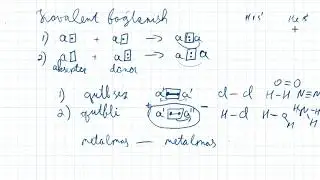 Kovalent bog'lanish
H 1s¹ He 1s²
1) a⋅ + a⋅ → a : a
2) a + a → a : a
akseptor donor
1) qutbsiz a' — a' Cl – Cl H – H O = O N ≡ N
2) qutbli a' — a'' H – Cl H – O H N – H H
metalmas — metalmas